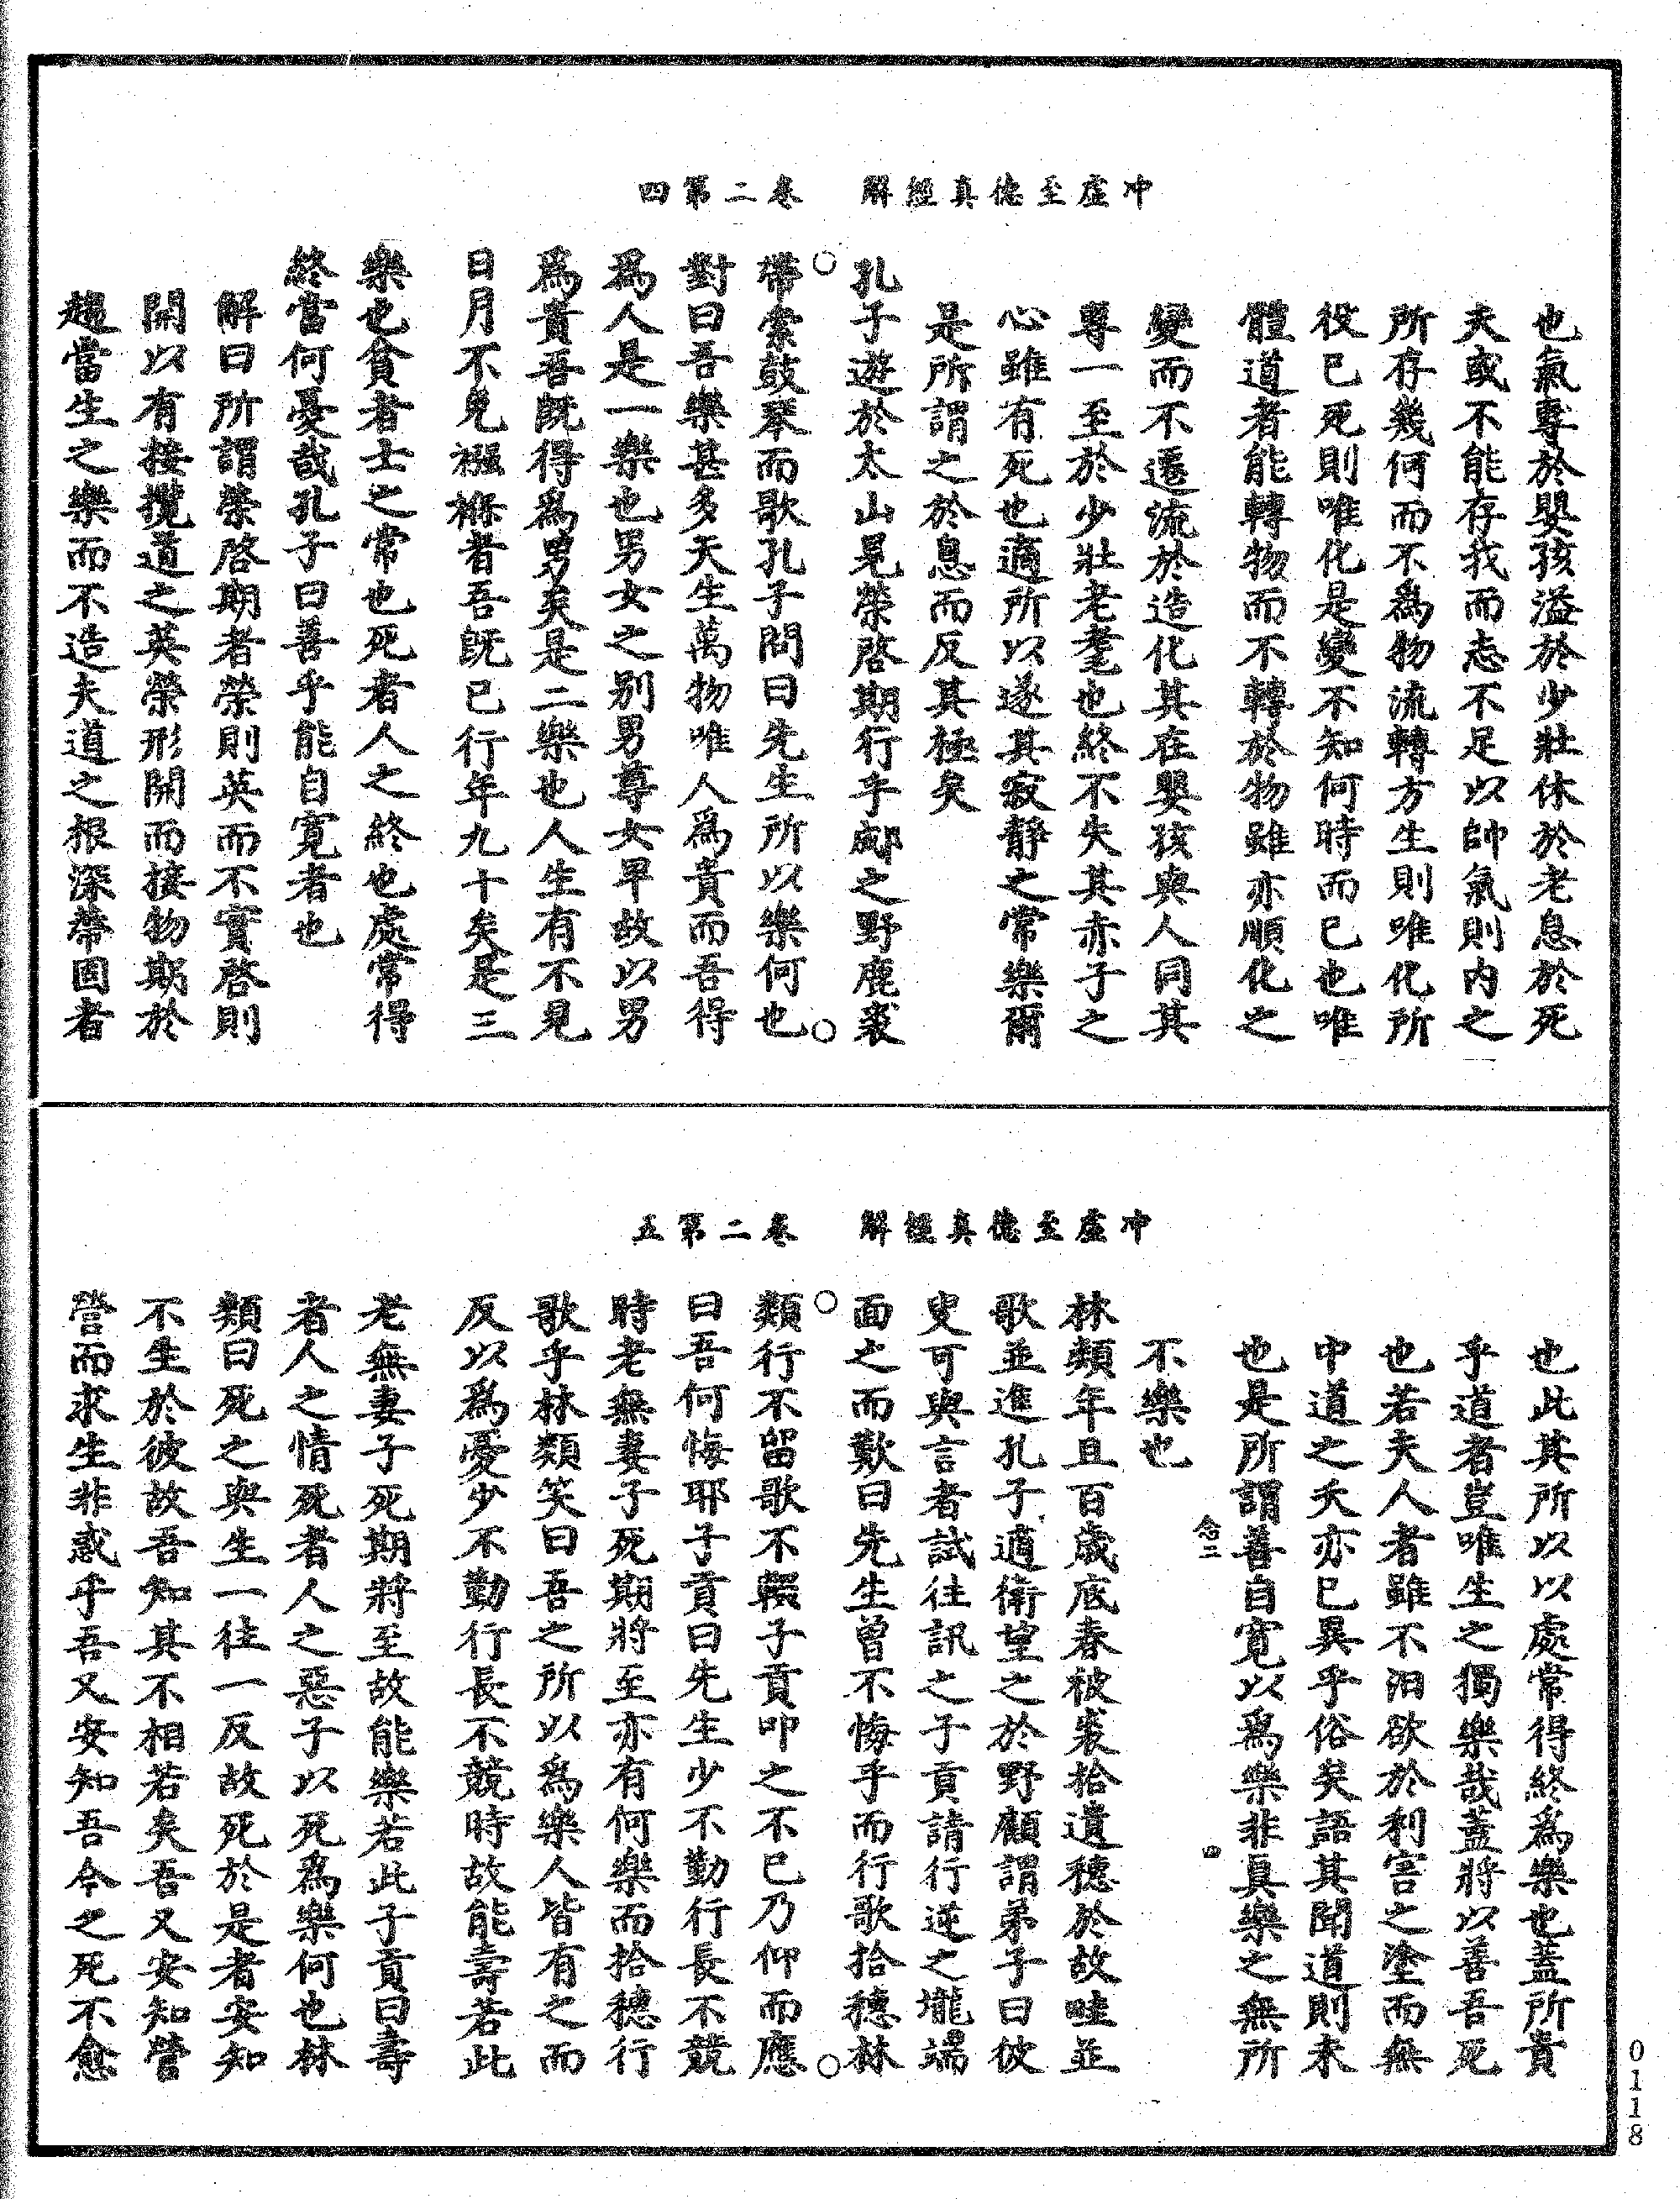 冲虛至德真經解　卷二第四
也氣專於嬰孩溢於少壯休於老息於死
夫或不能存我而志不足以帥氣則內之
所存幾何而不爲物流轉方生則唯化所
役已死則唯化是變不知何時而已也唯
體道者能轉物而不轉於物雖亦順化之
變而不遷流於造化其在嬰孩與人同其
專一至於少壯老耄也終不失其赤子之
心雖有死也適所以遂其寂靜之常樂爾
是所謂之於息而反其極矣
孔子遊於太山見榮啓期行乎郕之野鹿裘
帶索鼓琴而歌孔子問曰先生所以樂何也
對曰吾樂甚多天生萬物唯人爲貴而吾得
爲人是一樂也男女之别男尊女卑故以男
爲貴吾既得爲男矣是二樂也人生有不見
日月不免襁褓者吾既已行年九十矣是三
樂也貧者士之常也死者人之終也處常得
終當何憂哉孔子曰善乎能自寬者也
解曰所謂榮啓期者榮則英而不實啓則
開以有接攬道之英榮形開而接物期於
趨當生之樂而不造夫道之根深蔕固者
冲虛至德真經解　卷二第五
也此其所以以處常得終爲樂也蓋所貴
乎道者豈唯生之獨樂哉蓋將以善吾死
也若夫人者雖不汩欲於利害之塗而無
中道之夭亦已異乎俗矣語其聞道則未
也是所謂善自寬以爲樂非真樂之無所
念二　四
不樂也
林類年且百歲底春被裘拾遺穗於故畦並
歌並進孔子適衛望之於野顧謂弟子曰彼
叟可與言者試往訊之子貢請行逆之壠端
面之而歎曰先生曾不悔乎而行歌拾穗林
類行不留歌不輟子貢叩之不已乃仰而應
曰吾何悔耶子貢曰先生少不勤行長不競
時老無妻子死期將至亦有何樂而拾穗行
歌乎林類笑曰吾之所以爲樂人皆有之而
反以爲憂少不勤行長不競時故能壽若此
老無妻子死期將至故能樂若此子貢曰壽
者人之情死者人之惡子以死爲樂何也林
類曰死之與生一往一反故死於是者安知
不生於彼故吾知其不相若矣吾又安知營
營而求生非惑乎吾又安知吾今之死不愈
0118